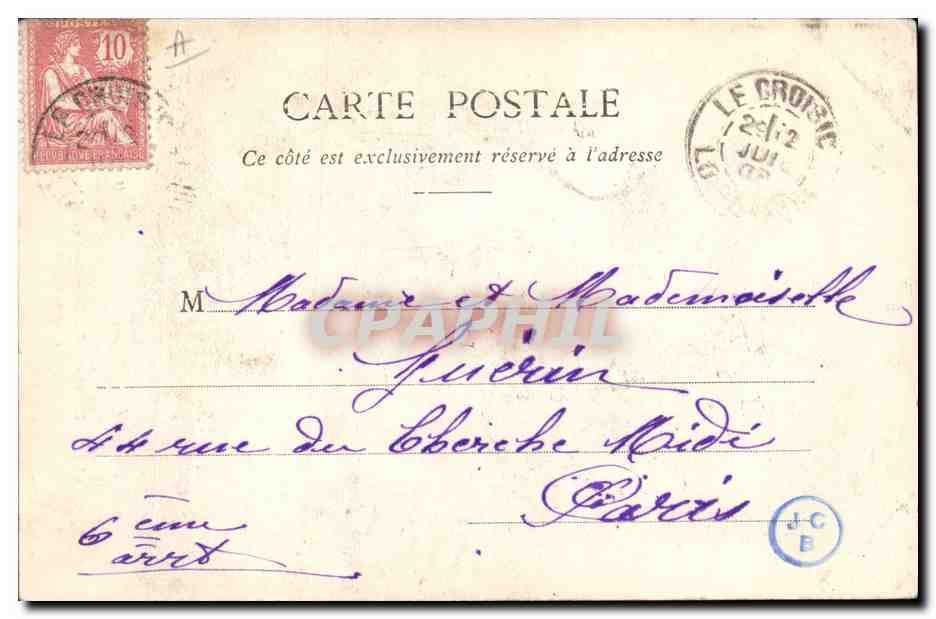 POSTES
10
REPUBLIQUE FRANCAISE
LE CROISIC
A
CARTE POSTALE
Ce côté est exclusivement réservé à l'adresse
LE CROISIC
JUI
M Madame et Mademoiselle
CPAPHIL
Guérin
44 rue du Cherche Midi
Paris
6 eme
arrt
J C
B